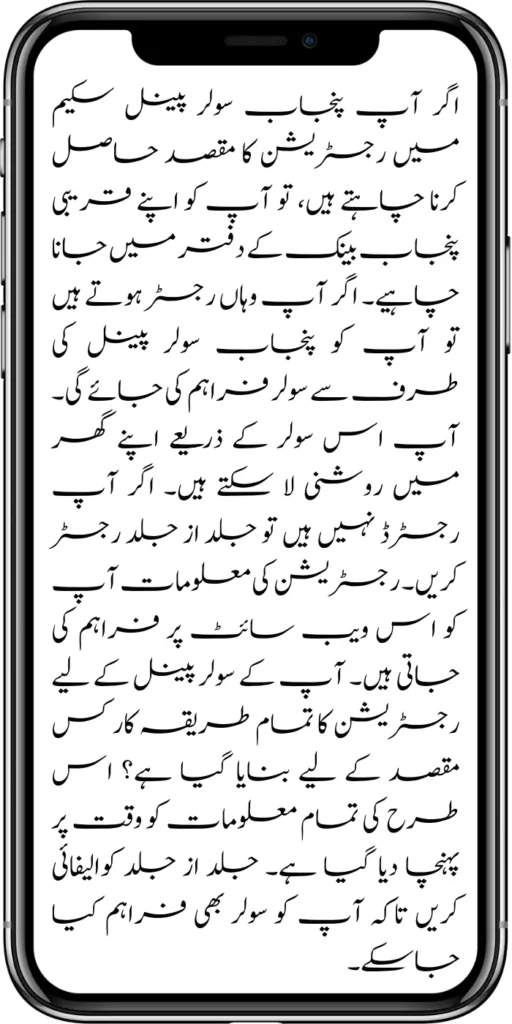 اگر آپ پنجاب سولر پینل سکیم
میں رجسٹریشن کا مقصد حاصل
کرنا چاہتے ہیں، تو آپ کو اپنے قریبی
پنجاب بینک کے دفتر میں جانا
چاہیے۔ اگر آپ وہاں رجسٹر ہوتے ہیں
تو آپ کو پنجاب سولر پینل کی
طرف سے سولر فراہم کی جائے گی۔
آپ اس سولر کے ذریعے اپنے گھر
میں روشنی لا سکتے ہیں۔ اگر آپ
رجسٹرڈ نہیں ہیں تو جلد از جلد رجسٹر
کریں۔رجسٹریشن کی معلومات آپ
کو اس ویب سائٹ پر فراہم کی
جاتی ہیں۔ آپ کے سولر پینل کے لیے
رجسٹریشن کا تمام طریقہ کار کس
مقصد کے لیے بنایا گیا ہے؟ اس
طرح کی تمام معلومات کو وقت پر
پہنچا دیا گیا ہے۔ جلد از جلد کوالیفائی
کریں تاکہ آپ کو سولر بھی فراہم کیا
جا سکے۔